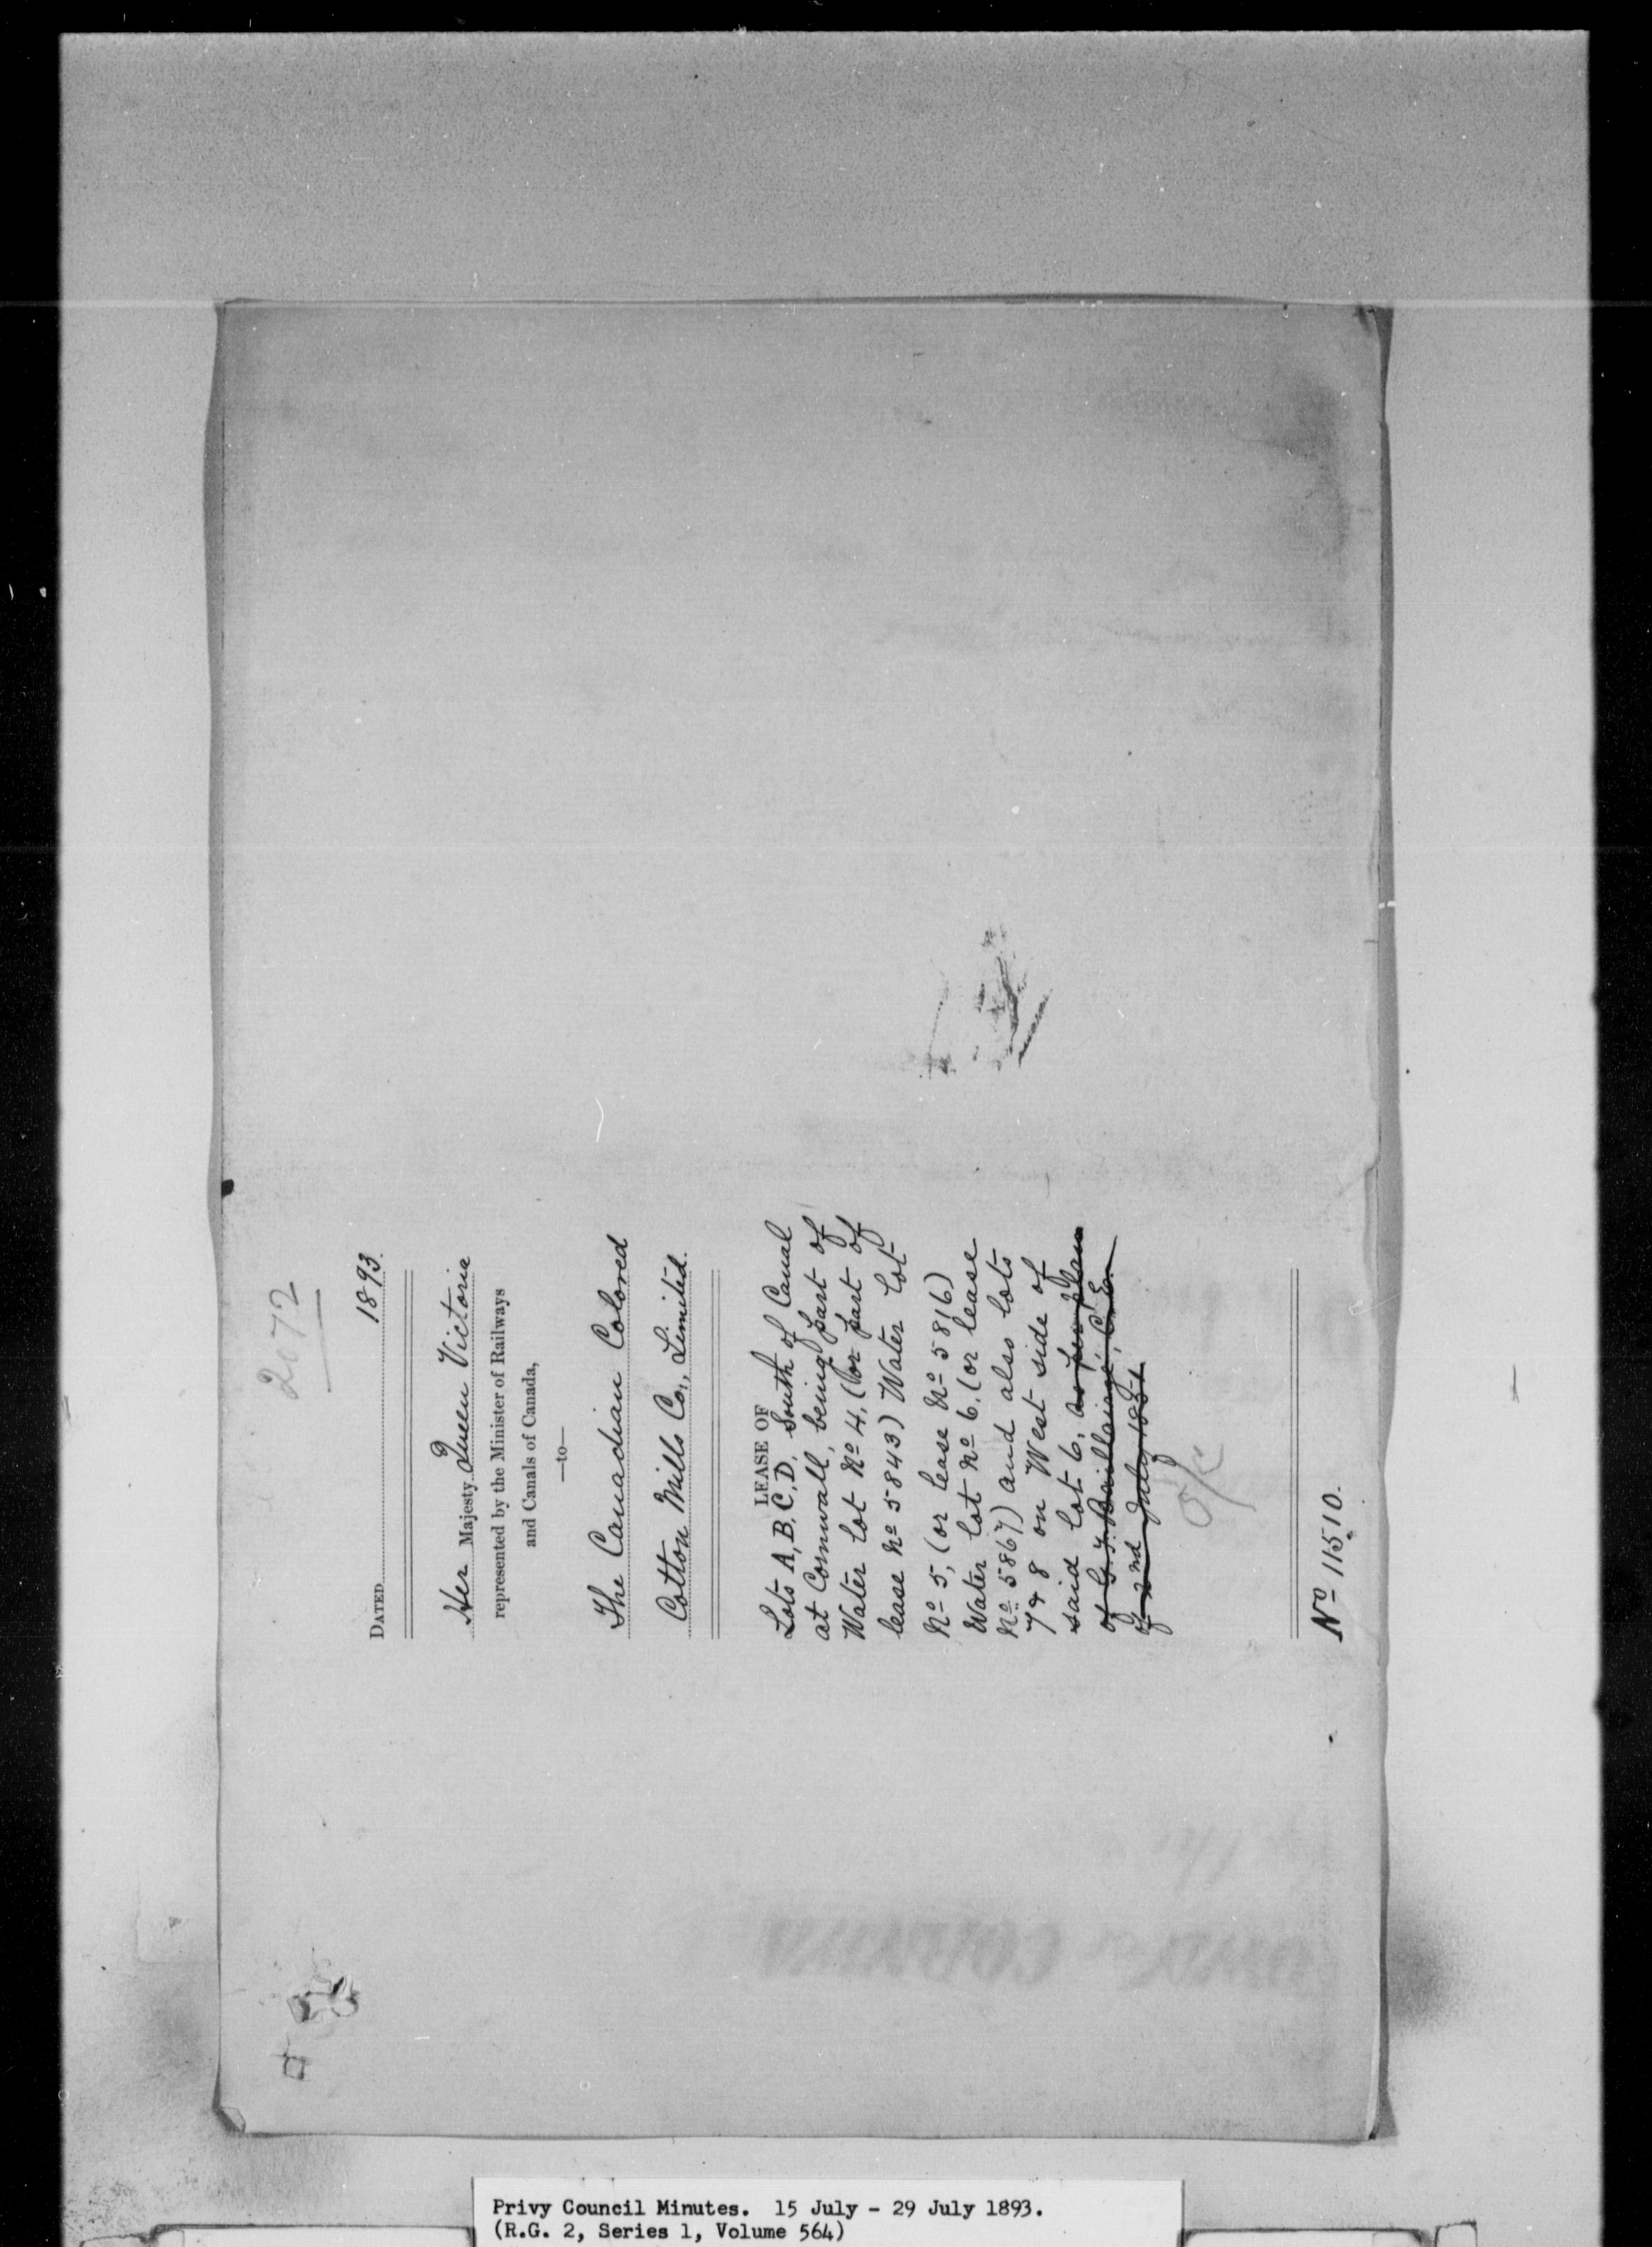 2072
DATED 1893.
Her Majesty Queen Victoria
represented by the Minister of Railways
and Canals of Canada,
—to—
The Canadian Colored
Cotton Mills Co., Limited.
LEASE OF
Lots A, B, C, D, South of Canal
at Cornwall, being part of
Water Lot No 4, (or part of
lease No 5843) Water Lot
No 5, (or lease No 5816)
Water Lot No 6, (or lease
No 5867) and also lots
7 & 8 on West side of
said Lot 6, as per plan
of G. F. Baillairgé, C.E.
of 2nd July 1851
O/C
No 11510.
Privy Council Minutes. 15 July - 29 July 1893.
(R.G. 2, Series 1, Volume 564)